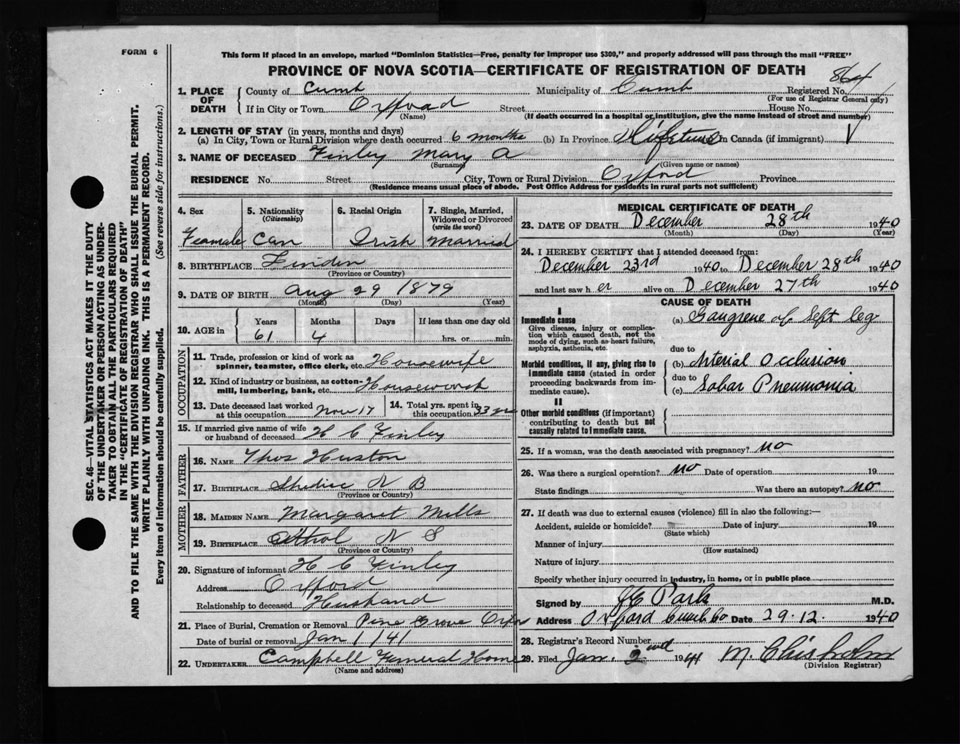 FORM 6
This form if placed in an envelope, marked "Dominion Statistics—Free, penalty for improper use $300," and properly addressed will pass through the mail "FREE"
PROVINCE OF NOVA SCOTIA—CERTIFICATE OF REGISTRATION OF DEATH
864
SEC. 46—VITAL STATISTICS ACT MAKES IT THE DUTY
OF THE UNDERTAKER OR PERSON ACTING AS UNDER-
TAKER TO OBTAIN ALL THE PARTICULARS REQUIRED
IN THE "CERTIFICATE OF REGISTRATION OF DEATH"
AND TO FILE THE SAME WITH THE DIVISION REGISTRAR WHO SHALL ISSUE THE BURIAL PERMIT.
WRITE PLAINLY WITH UNFADING INK. THIS IS A PERMANENT RECORD.
Every item of information should be carefully supplied. (See reverse side for instructions.)
1. PLACE OF DEATH
County of Cumb Municipality of Cumb Registered No.
(For use of Registrar General only)
If in City or Town Oxford Street House No.
(Name) (If death occurred in a hospital or institution, give the name instead of street and number)
2. LENGTH OF STAY (in years, months and days)
(a) In City, Town or Rural Division where death occurred 6 months (b) In Province Lifetime In Canada (if immigrant)
3. NAME OF DECEASED Finley Mary A
(Surname) (Given name or names)
RESIDENCE No. Street City, Town or Rural Division Oxford Province
(Residence means usual place of abode. Post Office Address for residents in rural parts not sufficient)
4. Sex 5. Nationality (Citizenship) 6. Racial Origin 7. Single, Married, Widowed or Divorced (write the word)
Feamale Can Irish Married
8. BIRTHPLACE Linden
(Province or Country)
9. DATE OF BIRTH Aug 29 1879
(Month) (Day) (Year)
10. AGE in Years Months Days If less than one day old
61 4 hrs. or min.
OCCUPATION
11. Trade, profession or kind of work as spinner, teamster, office clerk, etc. Housewife
12. Kind of industry or business, as cotton-mill, lumbering, bank, etc. Housework
13. Date deceased last worked at this occupation Nov 17 14. Total yrs. spent in this occupation 33 yrs
15. If married give name of wife or husband of deceased H C Finley
FATHER
16. NAME Thos Huston
17. BIRTHPLACE Shediac N B
(Province or Country)
MOTHER
18. MAIDEN NAME Margaret Mills
19. BIRTHPLACE Athol N S
(Province or Country)
20. Signature of informant H C Finley
Address Oxford
Relationship to deceased Husband
21. Place of Burial, Cremation or Removal Pine Grove Oxfor
Date of burial or removal Jan 1 / 41
22. UNDERTAKER Campbell Funeral Home
(Name and address)
MEDICAL CERTIFICATE OF DEATH
23. DATE OF DEATH December 28th 1940
(Month) (Day) (Year)
24. I HEREBY CERTIFY that I attended deceased from:
December 23rd 1940 to December 28th 1940
and last saw her alive on December 27th 1940
CAUSE OF DEATH
I
Immediate cause
Give disease, injury or complication which caused death, not the mode of dying, such as heart failure, asphyxia, asthenia, etc.
(a) Gangrene of left leg
due to
Morbid conditions, if any, giving rise to immediate cause (stated in order proceeding backwards from immediate cause).
(b) Arterial Occlusion
due to
(c) Lobar Pneumonia
II
Other morbid conditions (if important) contributing to death but not causally related to immediate cause.
25. If a woman, was the death associated with pregnancy? no
26. Was there a surgical operation? no Date of operation 19
State findings Was there an autopsy? no
27. If death was due to external causes (violence) fill in also the following:—
Accident, suicide or homicide? Date of injury 19
(State which)
Manner of injury
(How sustained)
Nature of injury
Specify whether injury occurred in industry, in home, or in public place
Signed by Park M.D.
Address Oxford Cumb Co Date 29-12 1940
28. Registrar's Record Number
29. Filed Jan. 2nd 1941 M. Chisholm
(Division Registrar)